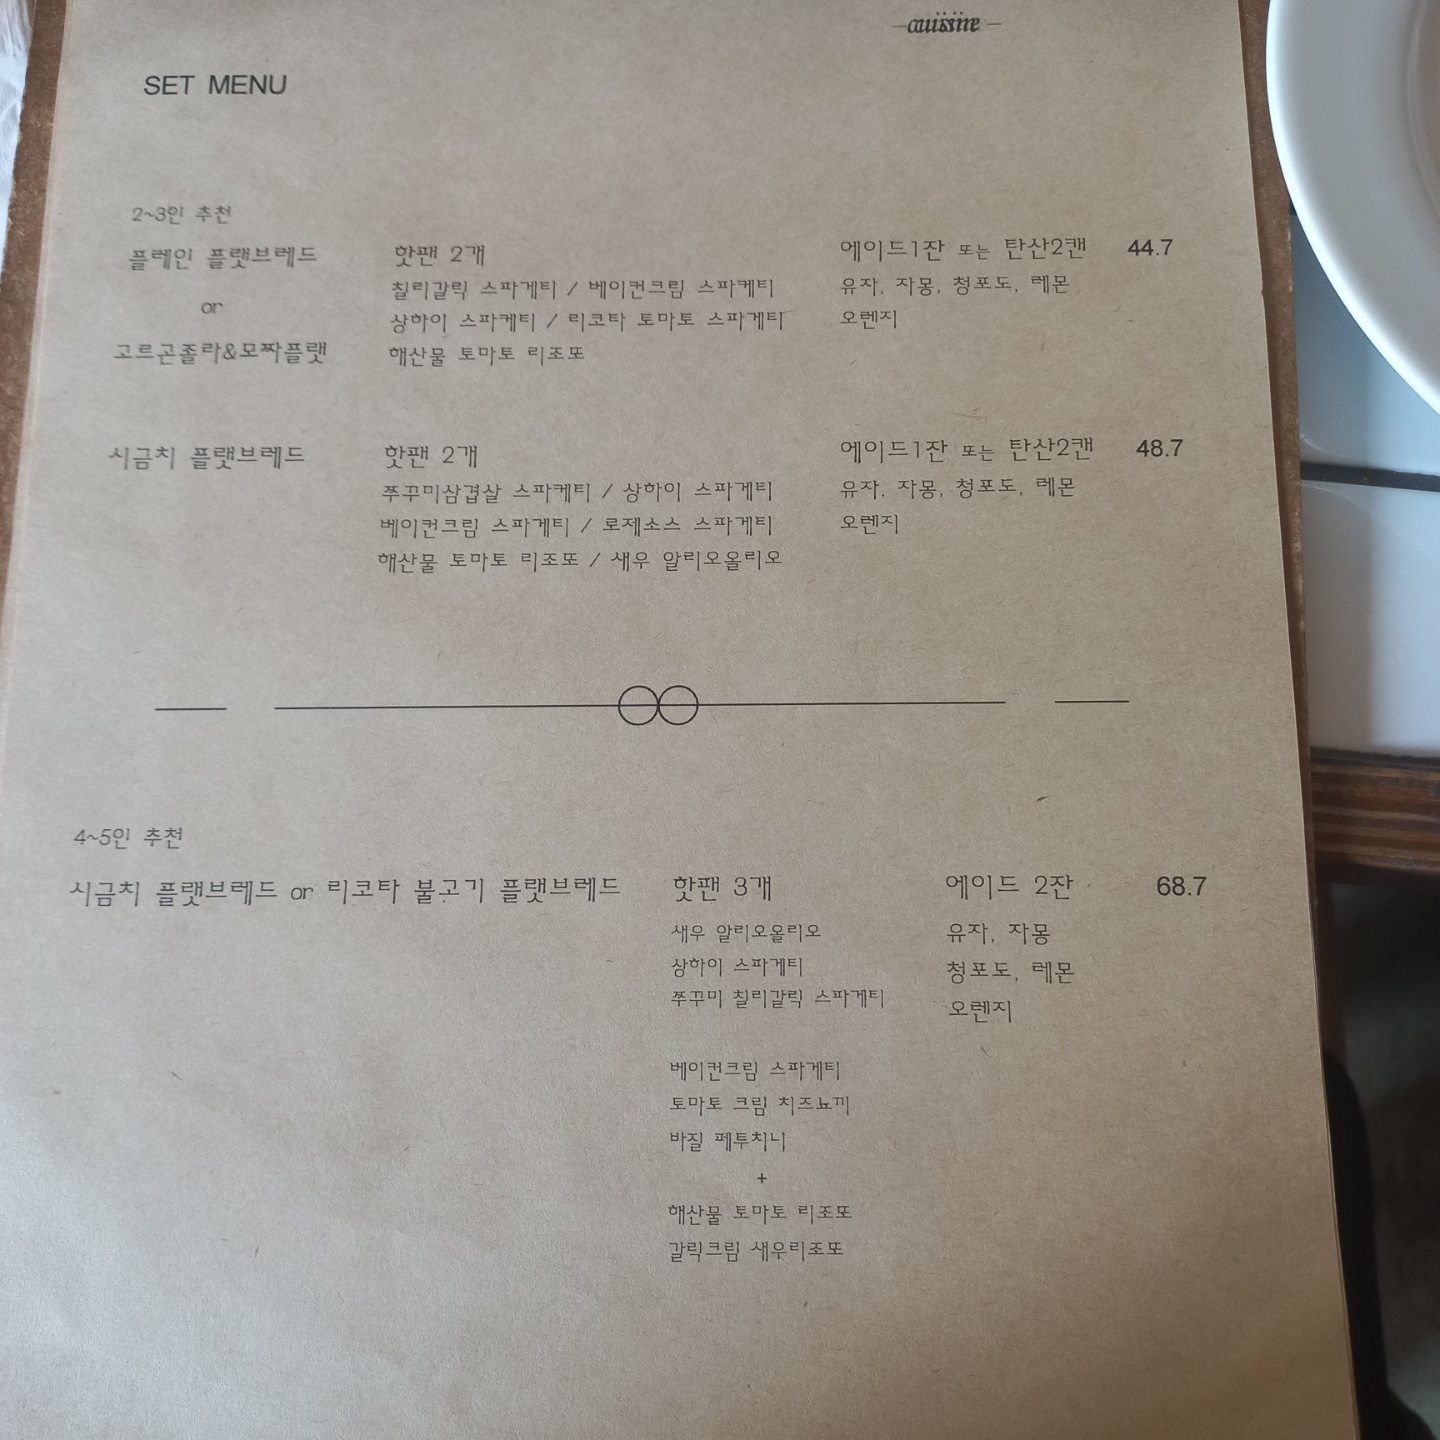 cuisine
SET MENU
2~3인 추천
플레인 플랫브레드 핫팬 2개 에이드1잔 또는 탄산2캔 44.7
칠리갈릭 스파게티 / 베이컨크림 스파케티 유자, 자몽, 청포도, 레몬
or
상하이 스파케티 / 리코타 토마토 스파게티 오렌지
고르곤졸라&모짜플랫 해산물 토마토 리조또
시금치 플랫브레드 핫팬 2개 에이드1잔 또는 탄산2캔 48.7
쭈꾸미삼겹살 스파케티 / 상하이 스파게티 유자, 자몽, 청포도, 레몬
베이컨크림 스파게티 / 로제소스 스파게티 오렌지
해산물 토마토 리조또 / 새우 알리오올리오
4~5인 추천
시금치 플랫브레드 or 리코타 불고기 플랫브레드 핫팬 3개 에이드 2잔 68.7
새우 알리오올리오 유자, 자몽
상하이 스파게티 청포도, 레몬
쭈꾸미 칠리갈릭 스파게티 오렌지
베이컨크림 스파게티
토마토 크림 치즈뇨끼
바질 페투치니
+
해산물 토마토 리조또
갈릭크림 새우리조또